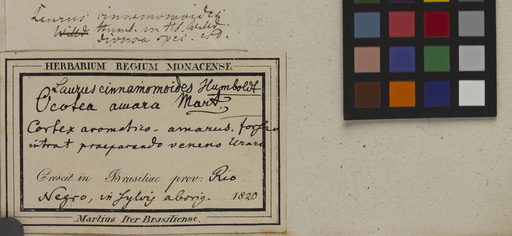 Laurus cinnamomoides
Willd Humb. in Hb. Willd
diversa spec. est.
HERBARIUM REGIUM MONACENSE.
Laurus cinnamomoides Humboldt
Ocotea amara Mart.
Cortex aromatico-amarus. forsan
intrat praeparando veneno Urari
Crescit in Brasiliae prov. Rio
Negro, in sylvis aborig. 1820
Martius Iter Brasiliense.